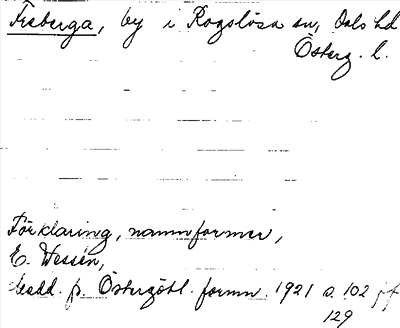 Freberga, by i Rogslösa sn, Dals hd
Österg. l.
Förklaring, namnformer,
E. Wessén,
Medd. fr. Östergötl. fornm. 1921 s. 102 jf
129